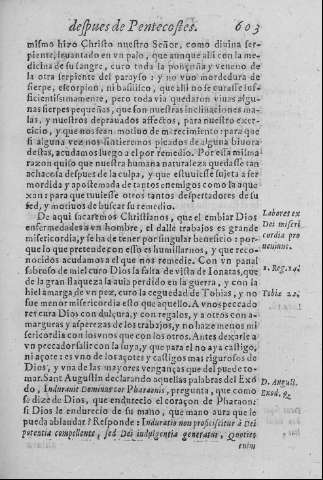 despues de Pentecostes. 603
mismo hizo Christo nuestro Señor, como diuina ser-
piente, leuantado en vn palo, que aunque alli con la me-
dicina de su sangre, curo toda la ponçoña y veneno de
la otra serpiente del parayso: y no vuo mordedura de
sierpe, escorpion, ni basilisco, que ahi no se curasse suf-
ficientissimamente, pero toda via quedaron viuas algu-
nas sierpes pequeñas, que son nuestras inclinaciones ma-
las, y nuestros deprauados affectos, para nuestro exer-
cicio, y que nos sean motiuo de merecimiento: para que
si alguna vez nos sintieremos picados de alguna biuora
destas, acudamos luego a el por remedio. Por essa misma
razon quiso que nuestra humana naturaleza quedasse tan
achacosa despues de la culpa, y que estuuiesse sujeta a ser
mordida y apostemada de tantos enemigos como la aque-
xan: para que tuuiesse otros tantos despertadores de su
sed, y motiuos de buscar su remedio.
De aqui sacaremos Christianos, que el embiar Dios
enfermedades a vn hombre, el dalle trabajos es grande
misericordia, y se ha de tener por singular beneficio: por-
que lo que pretende con esso es humillarnos, y que reco-
nocidos acudamos el que nos remedie. Con vn panal
sabroso de miel curo Dios la falta de vista de Ionatas, que
de la gran flaqueza la auia perdido en la guerra, y con la
hiel amarga de vn pez, curo la ceguedad de Tobias, y no
fue menor misericordia esto que aquello. A vnos peccado
res cura Dios con dulçura, y con regalos, y a otros con a-
marguras y asperezas de los trabajos, y no haze menos mi
sericordia con los vnos que con los otros. Antes dexarle a
vn peccador salir con la suya, y que para el no aya castigo,
ni açote: es vno de los açotes y castigos mas rigurosos de
Dios, y vna de las mayores venganças que del puede to-
mar. Sant Augustin declarando aquellas palabras del Exo
do, Indurauit Dominus cor Pharaonis, pregunta, que como
se dize de Dios, que endurecio el coraçon de Pharaon:
si Dios le endurecio de su mano, que mano aura que le
pueda ablandar? Responde: Induratio non proficiscitur à Dei
potentia compellente, sed Dei indulgentia generatur, Quoties
enim
Labores ex
Dei miseri
cordia pro
ueniunt.
1. Reg. 14.
Tobiæ 22.
D. Augusti.
Exod. 9.